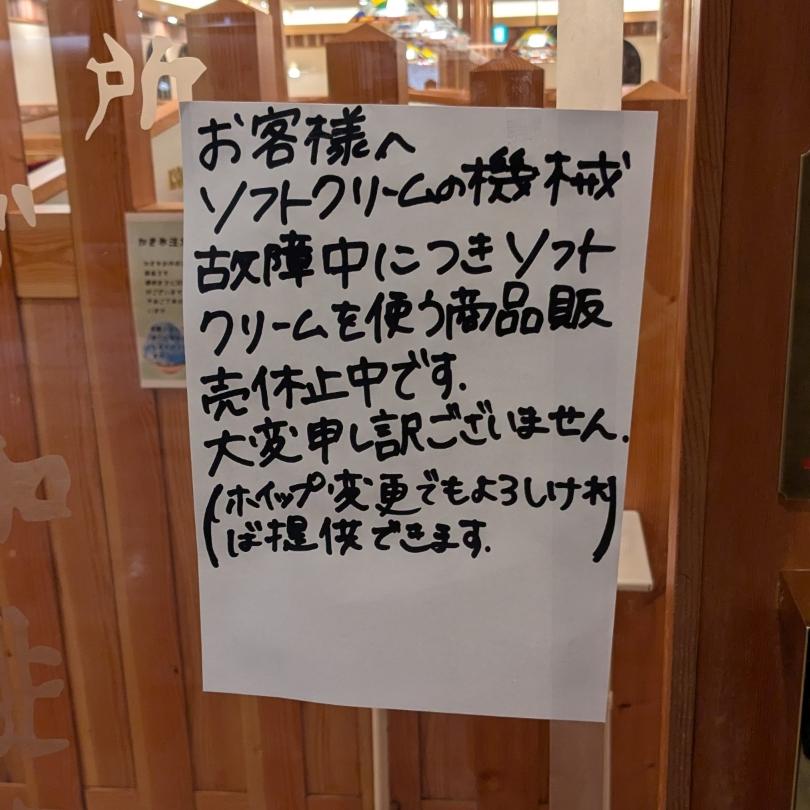 お客様へ
ソフトクリームの機械
故障中につきソフト
クリームを使う商品販
売休止中です.
大変申し訳ございません.
(ホイップ変更でもよろしけれ
ば提供できます.)
所
珈